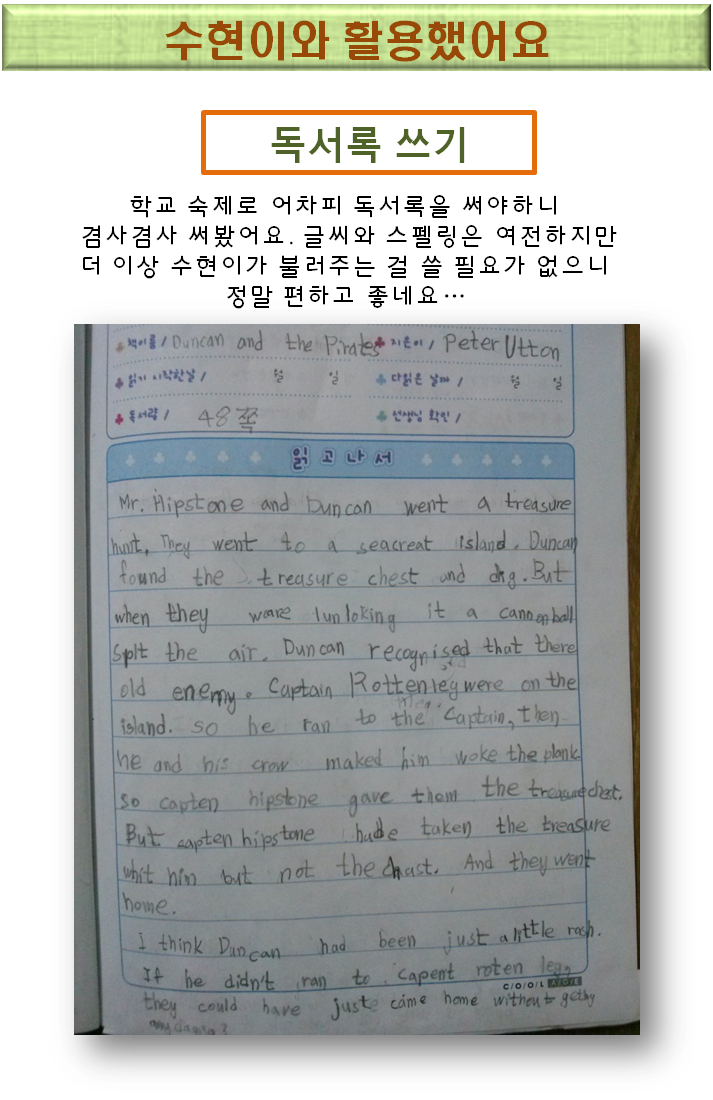 수현이와 활용했어요
독서록 쓰기
학교 숙제로 어차피 독서록을 써야하니
겸사겸사 써봤어요. 글씨와 스펠링은 여전하지만
더 이상 수현이가 불러주는 걸 쓸 필요가 없으니
정말 편하고 좋네요…
책이름 / Duncan and the Pirates 지은이 / Peter Utton
읽기 시작한날 / 월 일 다읽은 날짜 / 월 일
독서량 / 48쪽 선생님 확인 /
읽고나서
Mr. Hipstone and Duncan went a treasure
hunt. They went to a seacreat island. Duncan
found the treasure chest and dig. But
when they weare lunloking it a cannonball
split the air. Duncan recognised that there
old enemy. Captain Rottenleg were on the
island. so he ran to the Captain, then
he and his crow maked him woke the plonk
so capten hipstone gave them the treasure chest.
But capten hipstone hade taken the treasure
whit him but not the chast. And they went
home.
I think Duncan had been just a little rash.
If he didn't ran to capent roten leg,
they could have juste come home without
C/O/O/L A/D/E